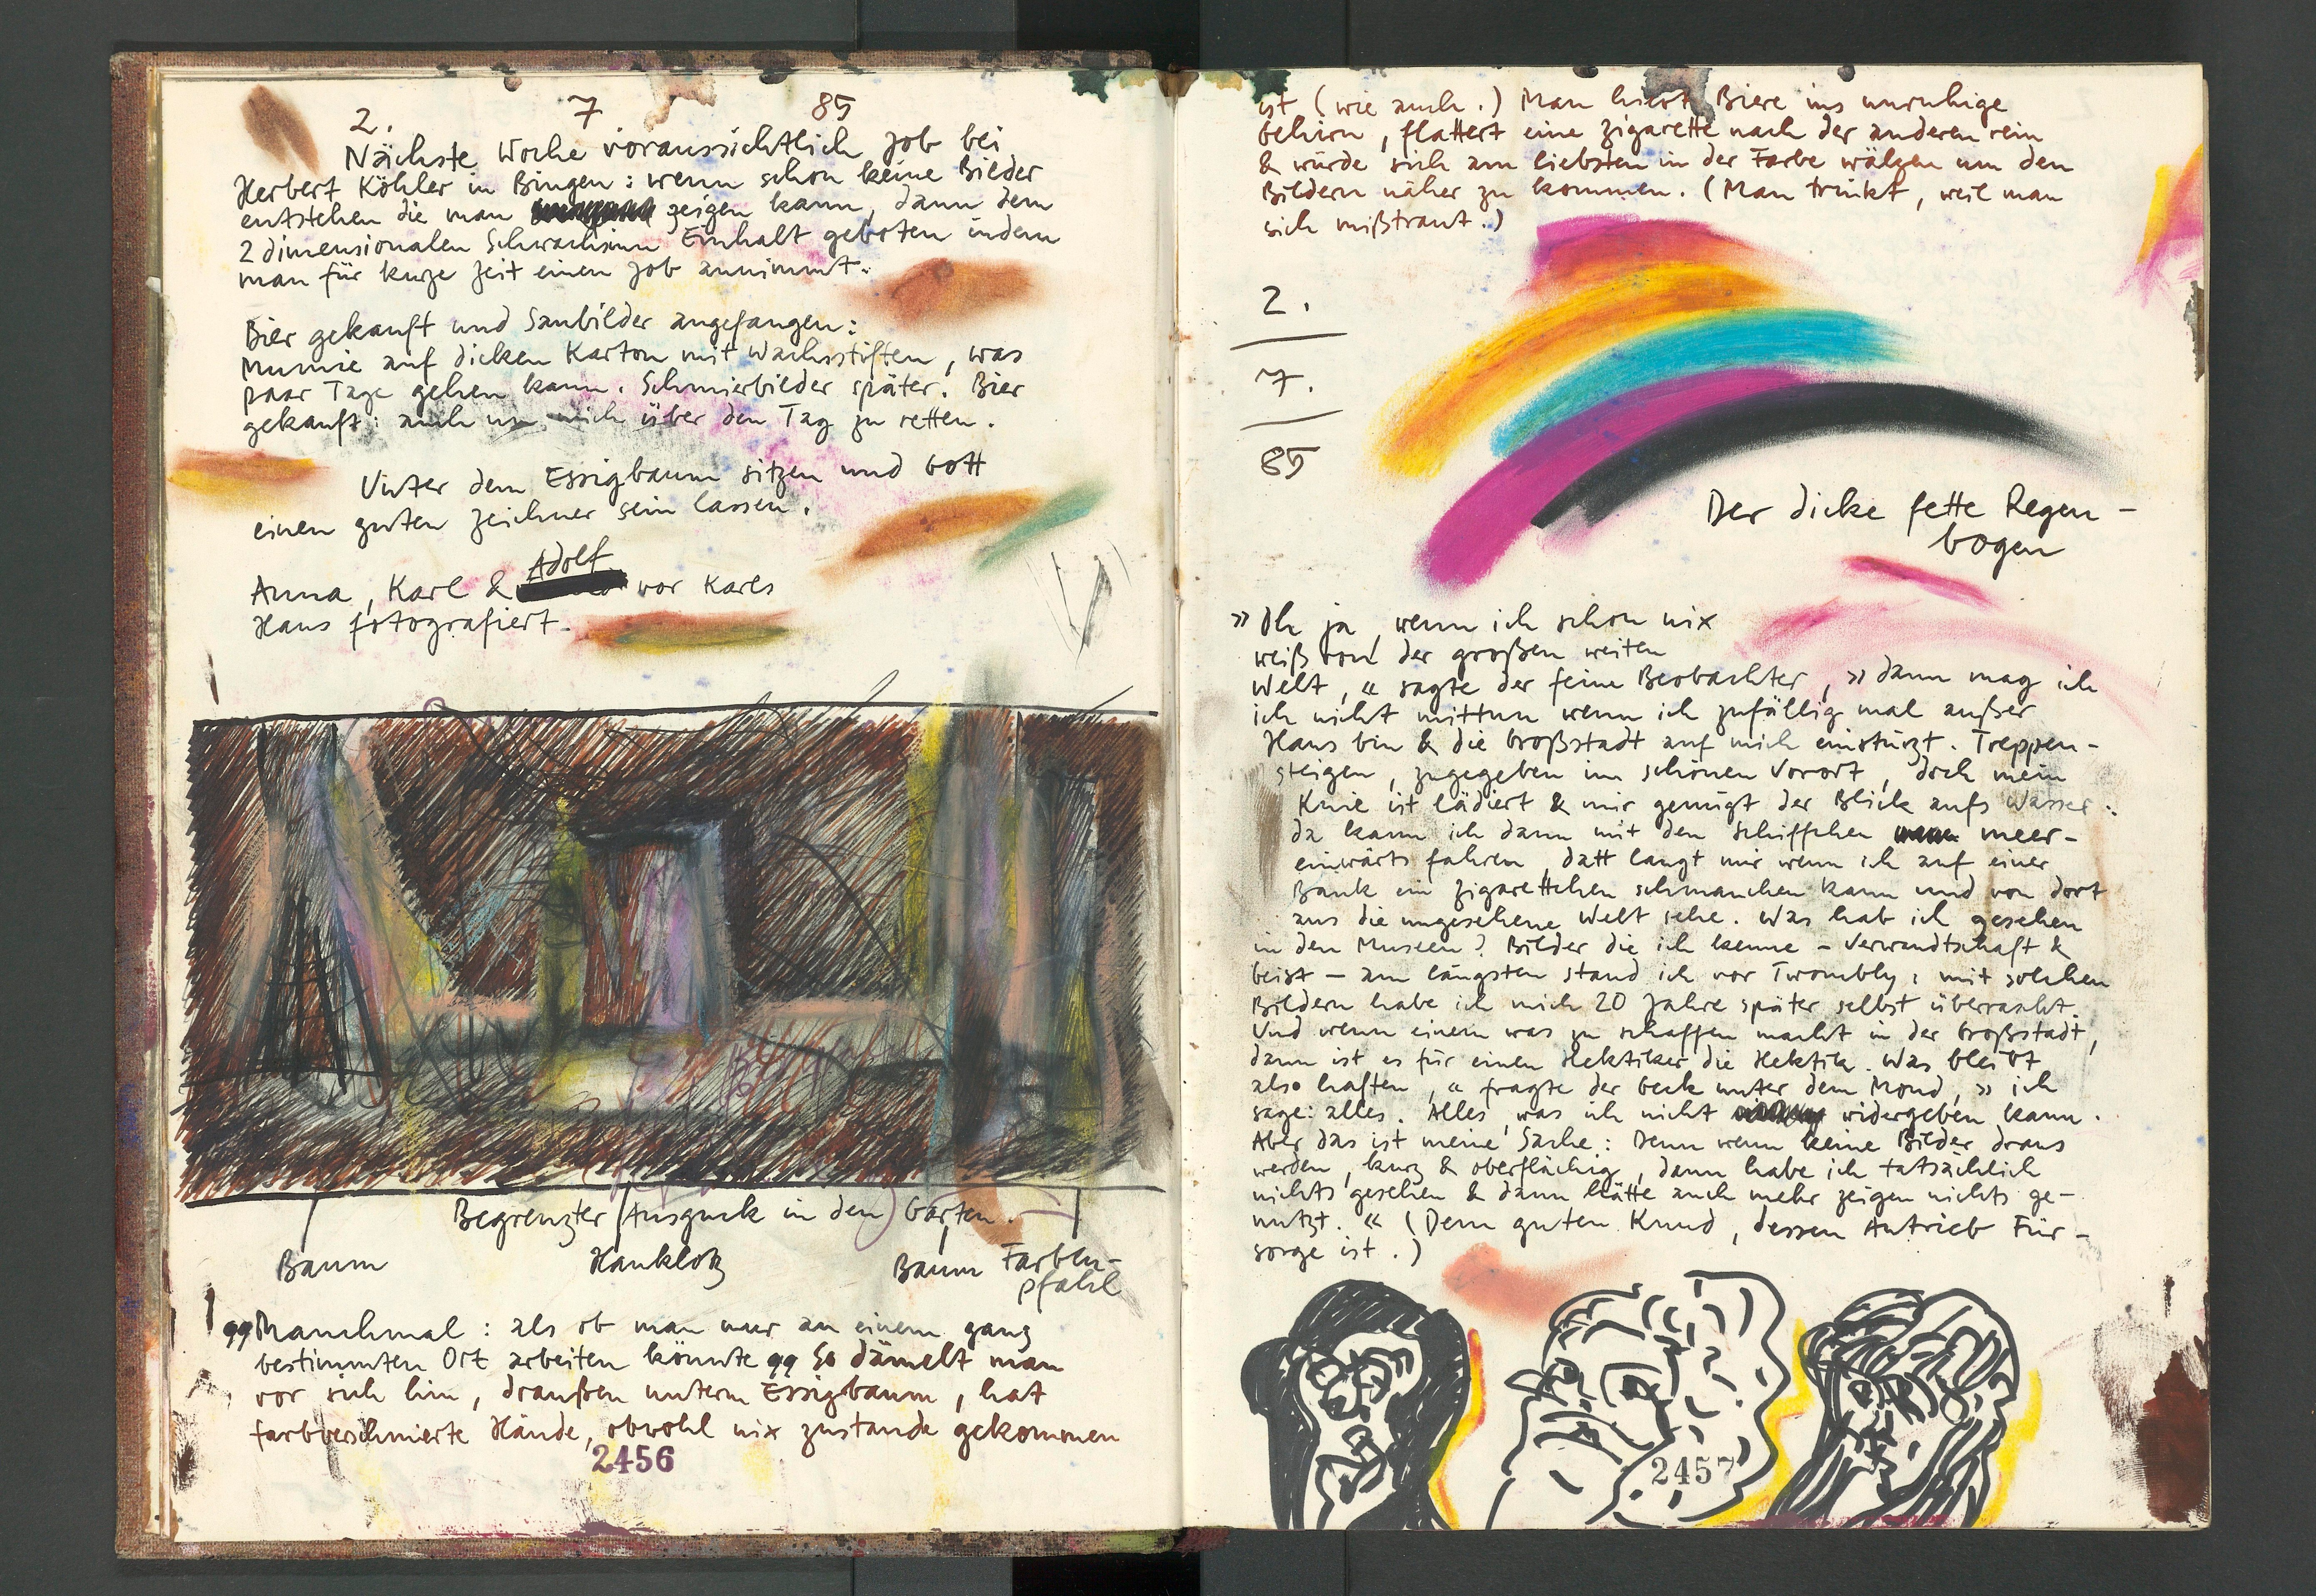 2. 7 85
Nächste Woche voraussichtlich Job bei
Herbert Köhler in Bingen: wenn schon keine Bilder
entstehen die man zeigen kann, dann dem
2 dimensionalen Schwachsinn Einhalt geboten indem
man für kurze Zeit einen Job annimmt.
Bier gekauft und Saubilder angefangen:
Mumie auf dicken Karton mit Wachsstiften, was
paar Tage gehen kann. Schmierbilder später. Bier
gekauft: auch um mich über den Tag zu retten.
Unter dem Essigbaum sitzen und Gott
einen guten Zeichner sein lassen.
Adolf
Anna, Karl & vor Karls
Haus fotografiert.
Begrenzter Ausguck in den Garten.
Baum Hauklotz Baum Farben-
pfahl
"Manchmal: als ob man nur an einem ganz
bestimmten Ort arbeiten könnte" So dämelt man
vor sich hin, draußen unterm Essigbaum, hat
farbverschmierte Hände, obwohl nix zustande gekommen
2456
ist (wie auch.) Man Biere ins unruhige
Gehirn, flattert eine Zigarette nach der anderen rein
& würde sich am liebsten in der Farbe wälzen um den
Bildern näher zu kommen. (Man trinkt, weil man
sich mißtraut.)
2.
7.
85
Der dicke fette Regen-
bogen
»Oh ja, wenn ich schon nix
weiß von der großen weiten
Welt,« sagte der feine Beobachter, »dann mag ich
ich nicht mittun wenn ich zufällig mal außer
Haus bin & die Großstadt auf mich einstürzt. Treppen-
steigen, zugegeben im schönen Vorort, doch mein
Knie ist lädiert & mir genügt der Blick aufs Wasser:
da kann ich dann mit den Schiffchen meer-
einwärts fahren, datt langt mir wenn ich auf einer
Bank ein Zigarettchen schmauchen kann und von dort
aus die ungesehene Welt sehe. Was hab ich gesehen
in den Museen? Bilder die ich kenne – Verwandtschaft &
Geist – am längsten stand ich vor Twombly; mit solchen
Bildern habe ich mich 20 Jahre später selbst überrascht.
Und wenn einem was zu schaffen macht in der Großstadt,
dann ist es für einen Hektiker die Hektik. Was bleibt
also haften,« fragte der Geck unter dem Mond, »ich
sage: alles. Alles, was ich nicht widergeben kann.
Aber das ist meine Sache: Denn wenn keine Bilder draus
werden, kurz & oberflächig, dann habe ich tatsächlich
nichts gesehen & dann hätte auch mehr zeigen nichts ge-
nutzt.« (Dem guten Knud, dessen Antrieb Für-
sorge ist.)
2457